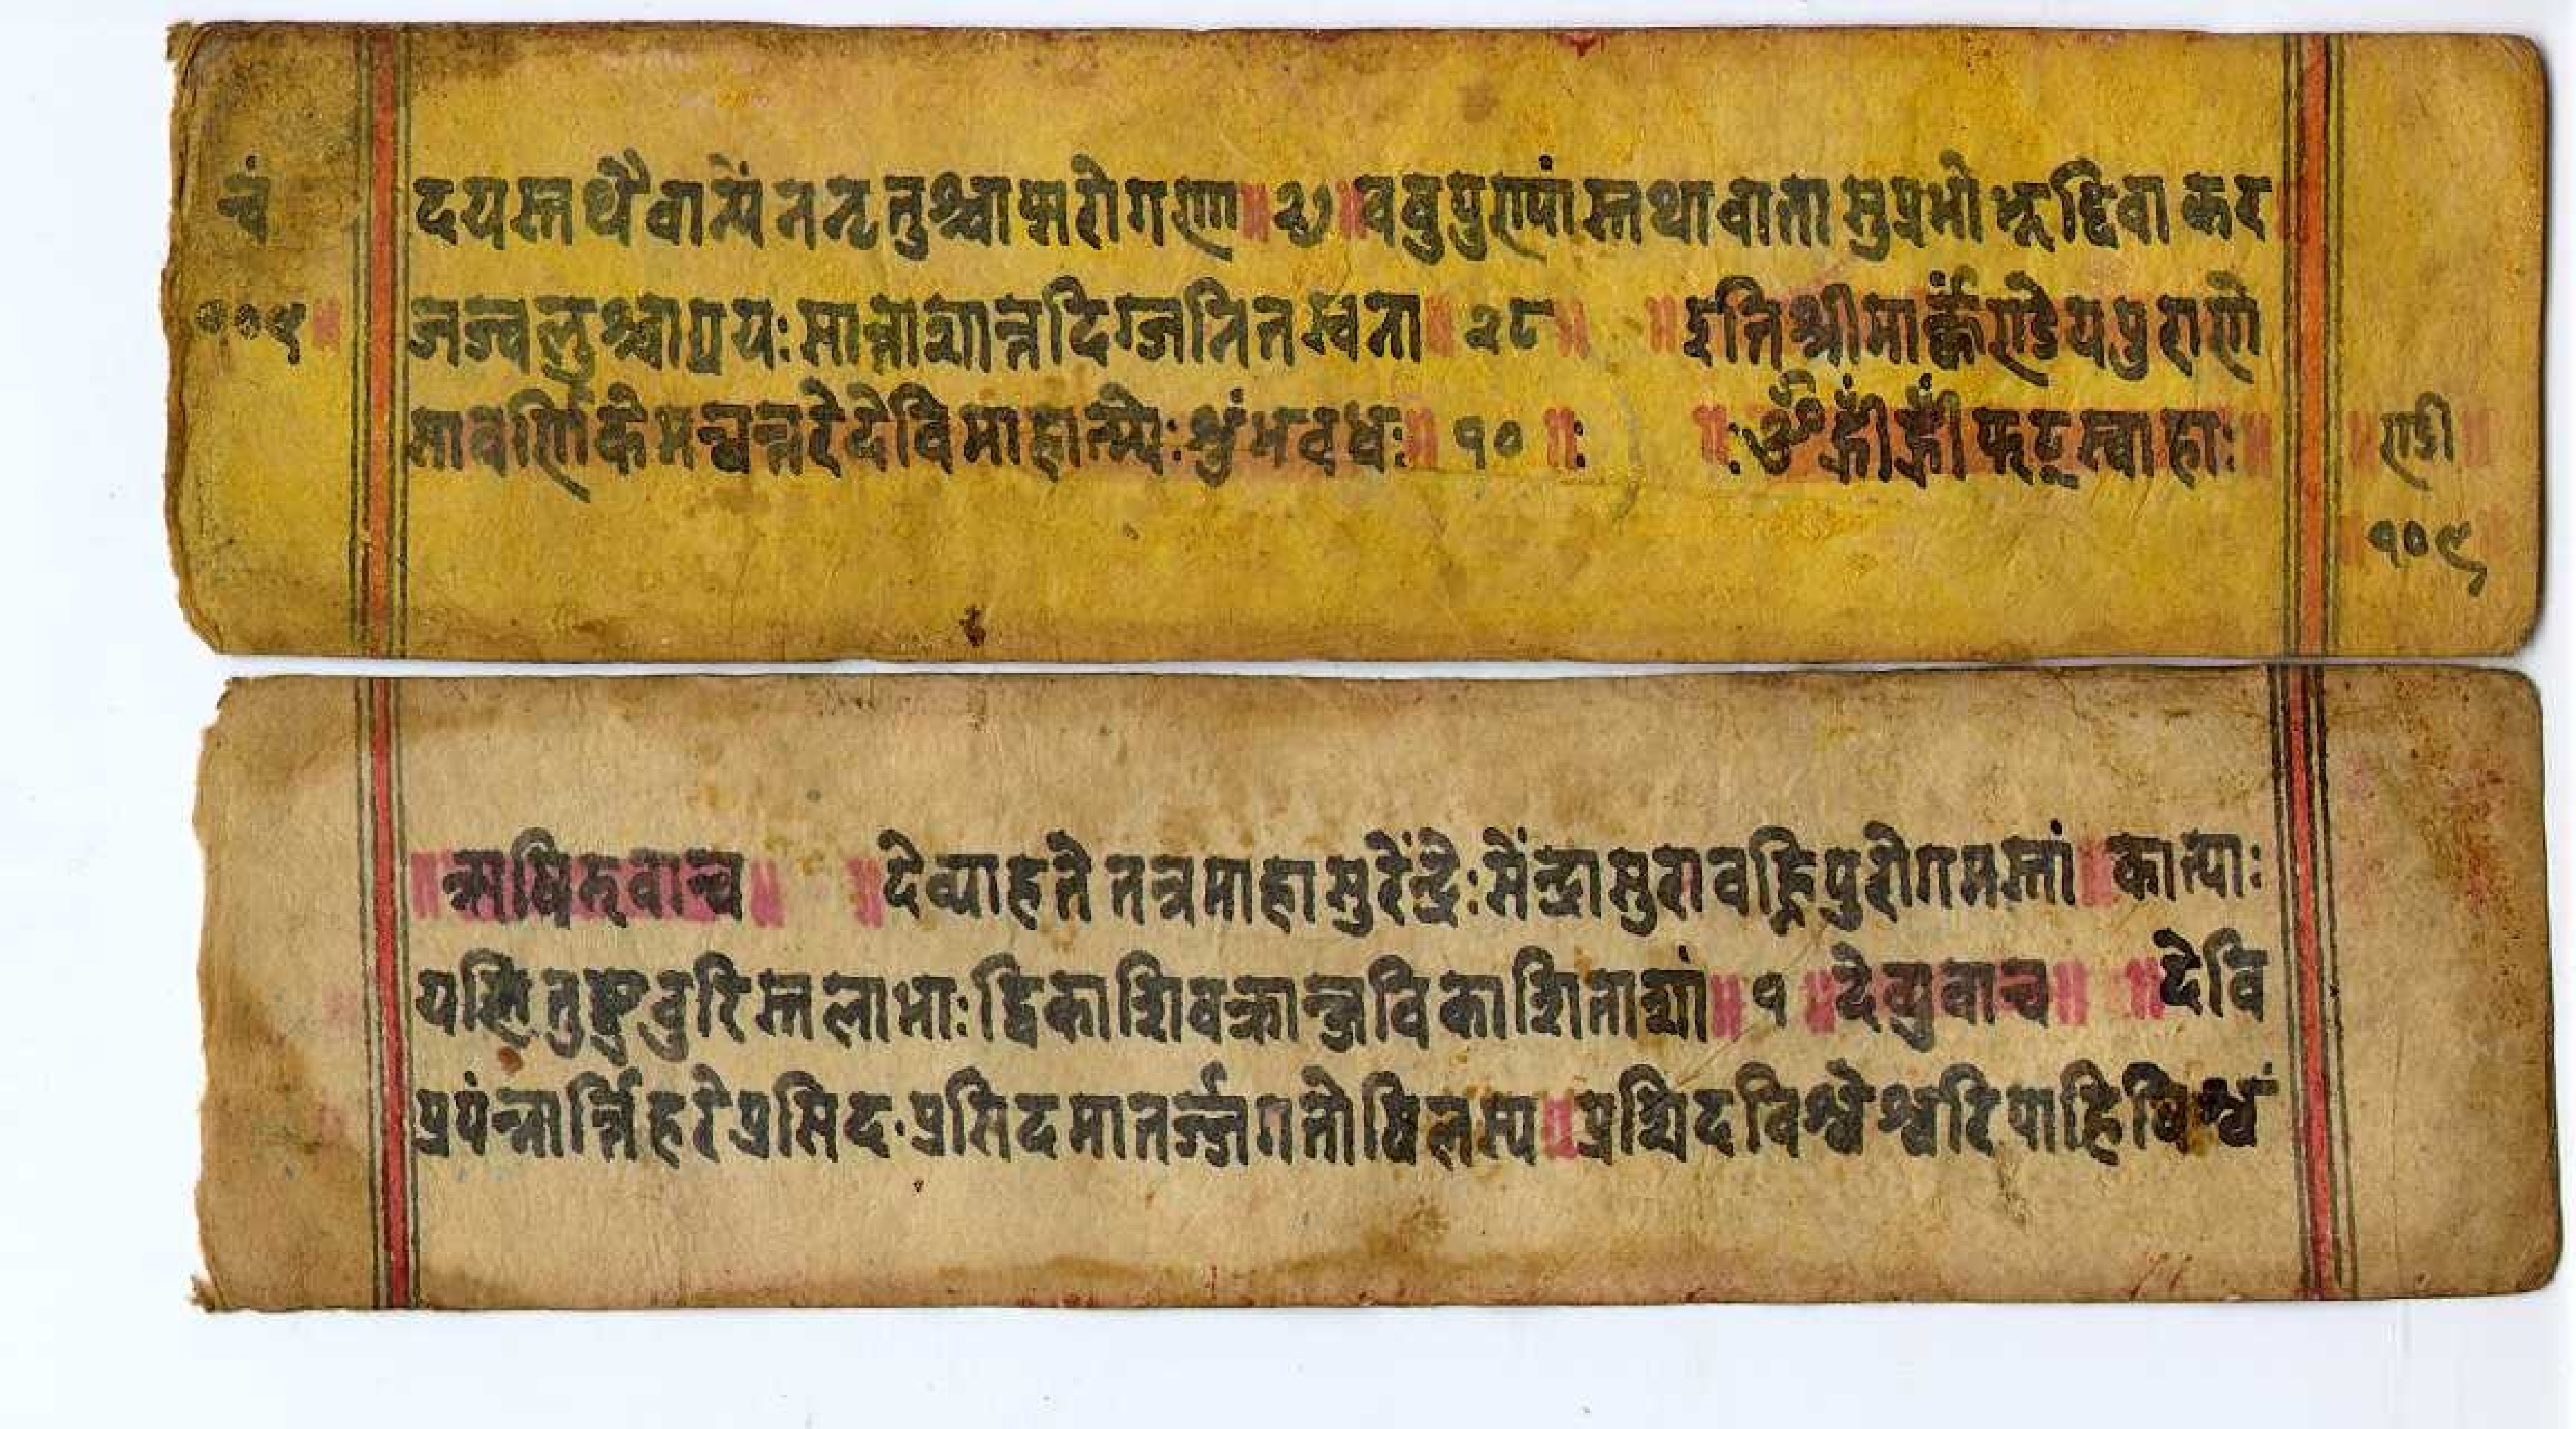 चं
१०९॥
दयस्तथैवान्यें ननृतुश्चाप्सरोगणा ॥ २७ ॥ ववुपुण्यांस्तथावाता सुप्रभोभूद्दिवाकर
जज्वलुश्चाग्नयः सान्ताशान्तदिग्जनितस्वना ॥ २८ ॥ ॥ इतिश्रीमार्कंण्डेयपुराणे
सावर्णिकेमन्वन्तरेदेविमाहात्म्येः शुंभवधः ॥ १० ॥: ॥: ॐ ह्रीं ह्रीं फट् स्वाहाः ॥
॥ ण्डी ॥
॥ १०९ ॥
॥ ऋषिरुवाच ॥ ॥ देव्याहते तत्रमाहासुरेंन्द्रैः सेंन्द्रासुरावह्निपुरोगमस्तां ॥ कात्याः
यन्निंतुष्टुवुरिस्तलाभाः द्विकाशिवक्रान्जविकाशिताशां ॥ १ ॥ देव्युवाच ॥ ॥ देवि
प्रपंन्नार्त्तिहरेप्रसिद प्रसिदमातर्ज्जगतोखिलस्य ॥ प्रशिदविश्वेश्वरिपाहिविश्वं